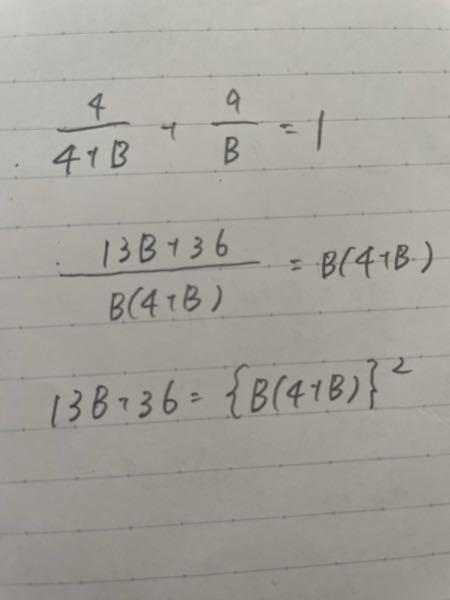 4/(4+B) + 9/B = 1
(13B+36)/(B(4+B)) = B(4+B)
13B+36 = {B(4+B)}²